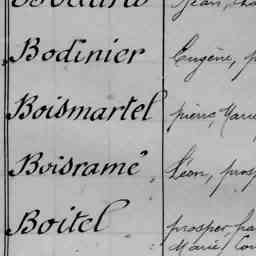 Jean,
Bodinier Eugène, p
Boismartel pierre, Marie
Boisramé, Léon, prosp
Boitel prosper,
Marie, Lou